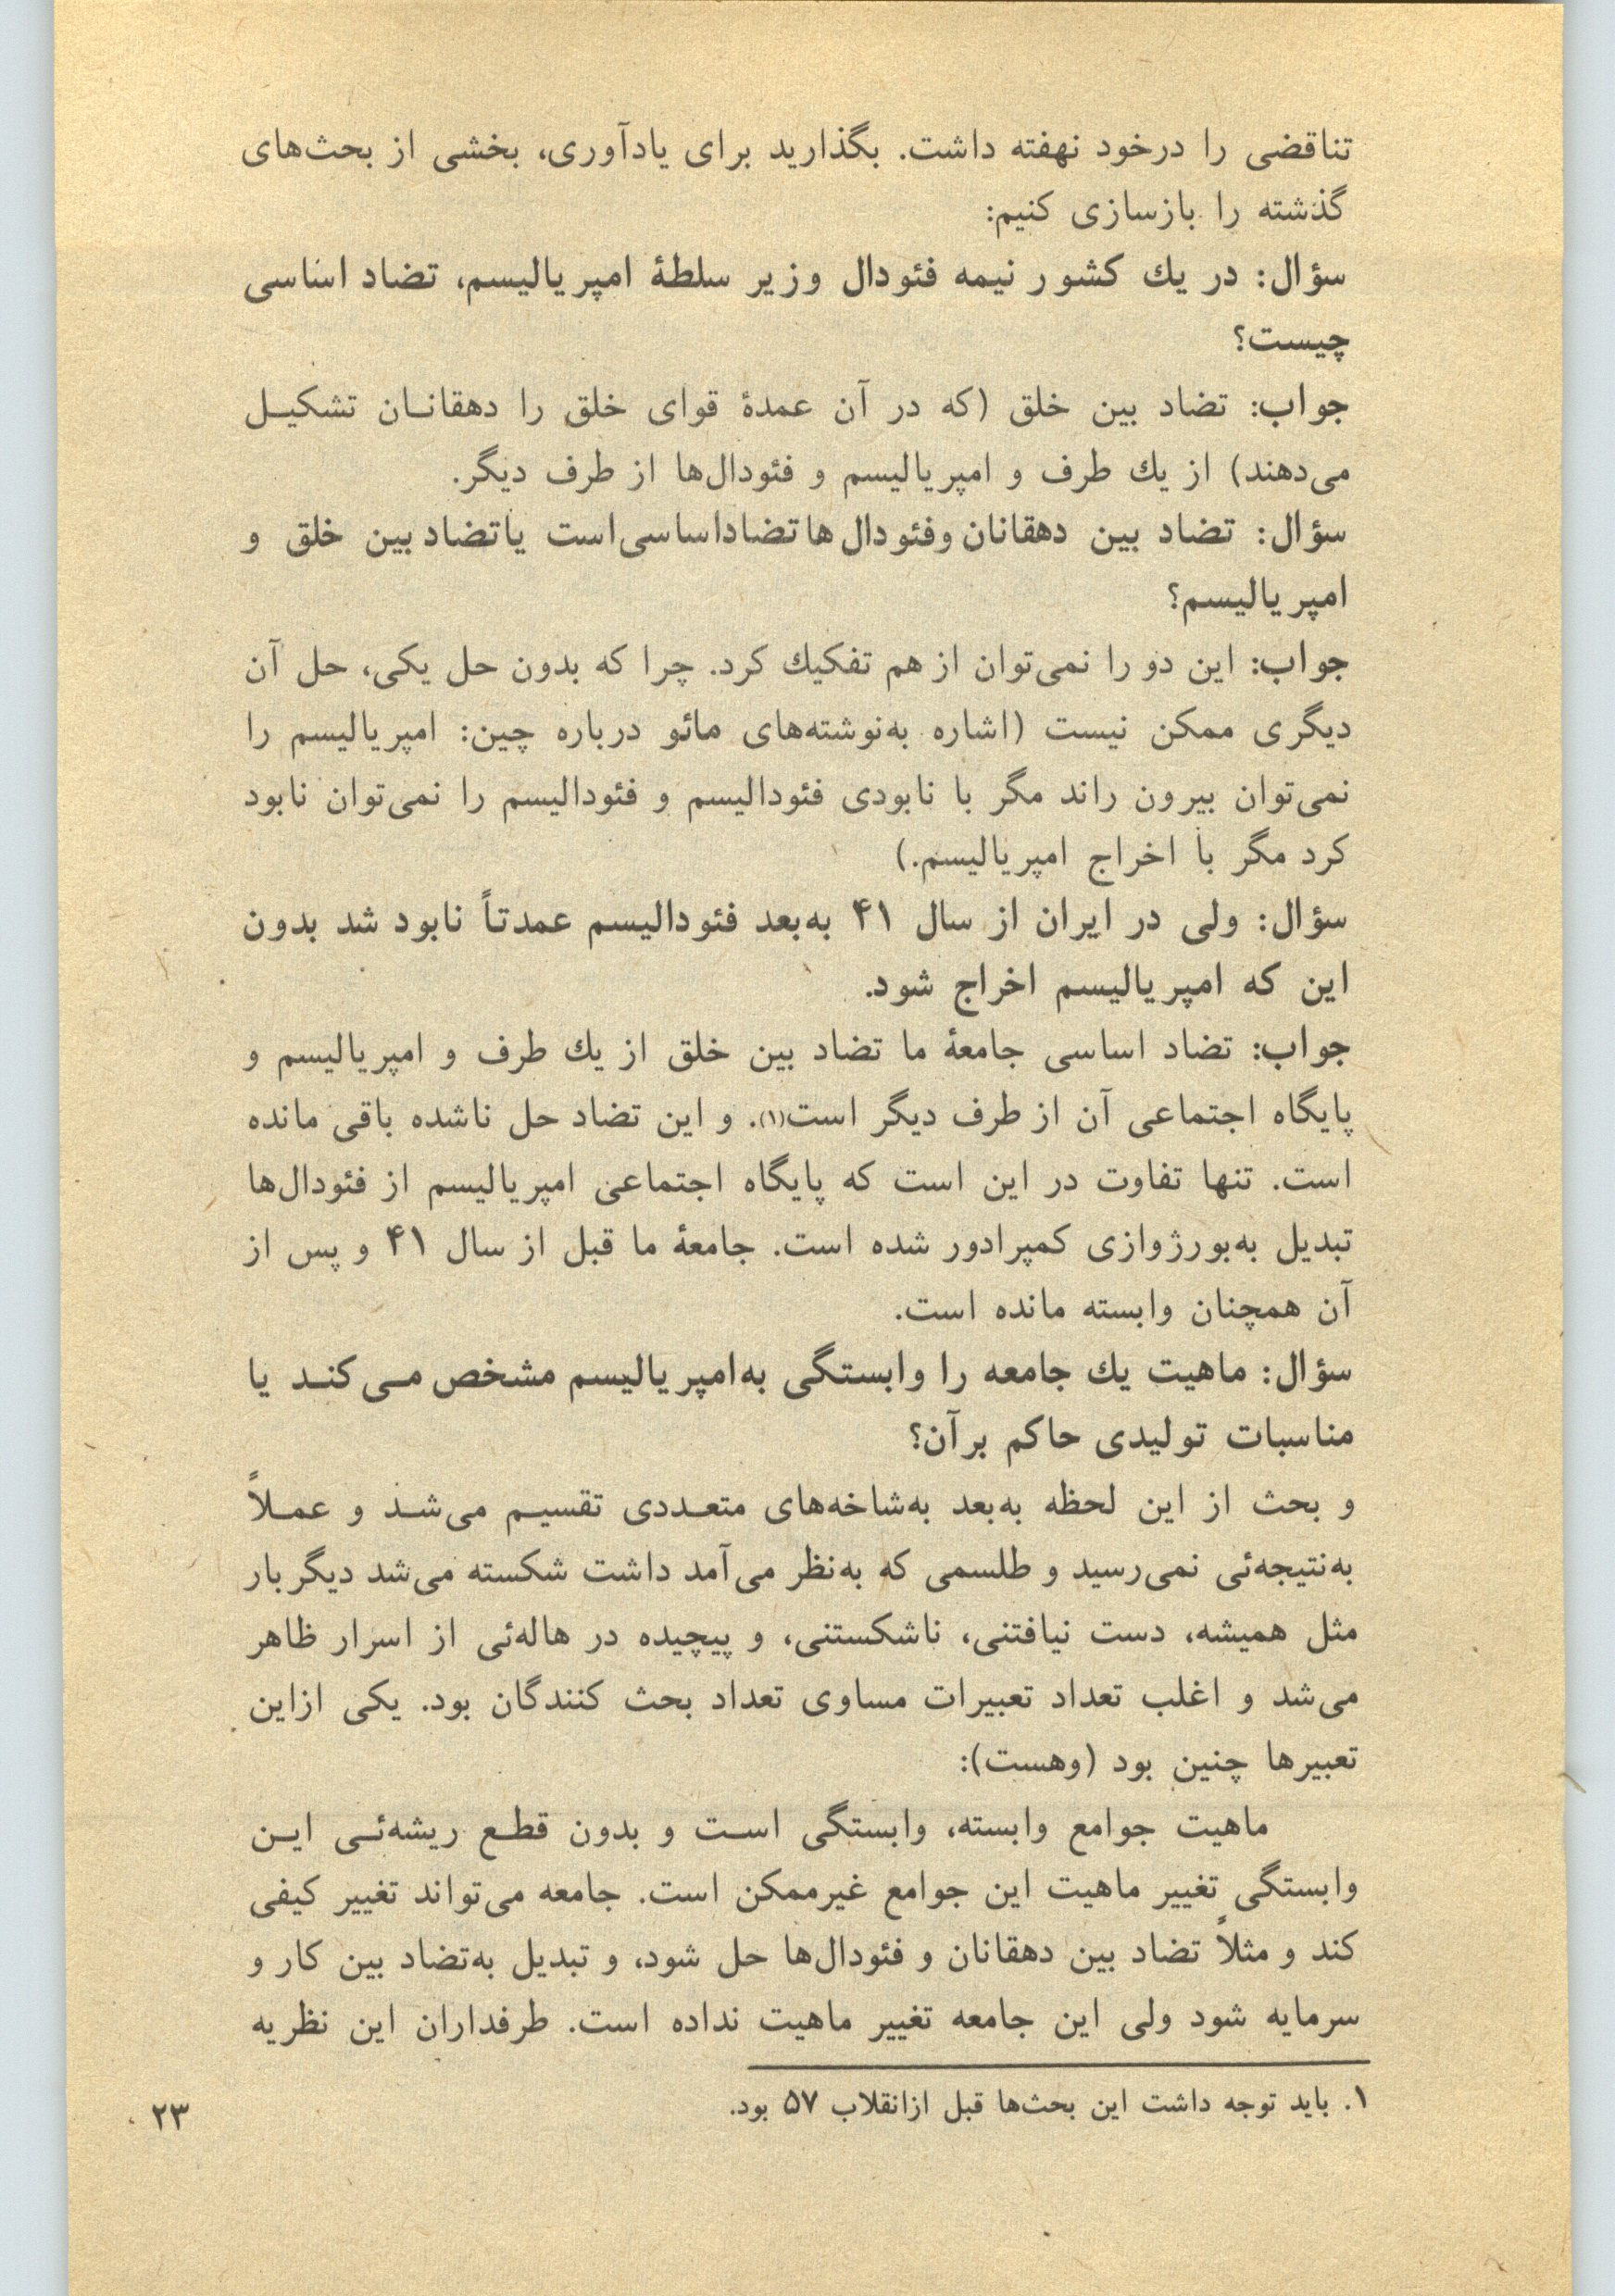 تناقضی را درخود نهفته داشت. بگذارید برای یادآوری، بخشی از بحث‌های
گذشته را بازسازی کنیم:
سؤال: در یك کشور نیمه فئودال وزیر سلطهٔ امپریالیسم، تضاد اساسی
چیست؟
جواب: تضاد بین خلق (که در آن عمدهٔ قوای خلق را دهقانـان تشکیـل
می‌دهند) از یك طرف و امپریالیسم و فئودال‌ها از طرف دیگر.
سؤال: تضاد بین دهقانان وفئودال‌ها تضاداساسی‌است یاتضاد بین خلق و
امپریالیسم؟
جواب: این دو را نمی‌توان از هم تفکیك کرد. چرا که بدون حل یکی، حل آن
دیگری ممکن نیست (اشاره به‌نوشته‌های مائو درباره چین: امپریالیسم را
نمی‌توان بیرون راند مگر با نابودی فئودالیسم و فئودالیسم را نمی‌توان نابود
کرد مگر با اخراج امپریالیسم.)
سؤال: ولی در ایران از سال ۴۱ به‌بعد فئودالیسم عمدتاً نابود شد بدون
این که امپریالیسم اخراج شود.
جواب: تضاد اساسی جامعهٔ ما تضاد بین خلق از یك طرف و امپریالیسم و
پایگاه اجتماعی آن از طرف دیگر است(۱). و این تضاد حل ناشده باقی مانده
است. تنها تفاوت در این است که پایگاه اجتماعی امپریالیسم از فئودال‌ها
تبدیل به‌بورژوازی کمپرادور شده است. جامعهٔ ما قبل از سال ۴۱ و پس از
آن همچنان وابسته مانده است.
سؤال: ماهیت یك جامعه را وابستگی به‌امپریالیسم مشخص مـی‌کنـد یا
مناسبات تولیدی حاکم برآن؟
و بحث از این لحظه به‌بعد به‌شاخه‌های متعـددی تقسیـم می‌شـد و عمـلاً
به‌نتیجه‌ئی نمی‌رسید و طلسمی که به‌نظر می‌آمد داشت شکسته می‌شد دیگربار
مثل همیشه، دست نیافتنی، ناشکستنی، و پیچیده در هاله‌ئی از اسرار ظاهر
می‌شد و اغلب تعداد تعبیرات مساوی تعداد بحث کنندگان بود. یکی ازاین
تعبیرها چنین بود (وهست):
ماهیت جوامع وابسته، وابستگی اسـت و بدون قطـع ریشه‌ئـی ایـن
وابستگی تغییر ماهیت این جوامع غیرممکن است. جامعه می‌تواند تغییر کیفی
کند و مثلاً تضاد بین دهقانان و فئودال‌ها حل شود، و تبدیل به‌تضاد بین کار و
سرمایه شود ولی این جامعه تغییر ماهیت نداده است. طرفداران این نظریه
۱. باید توجه داشت این بحث‌ها قبل ازانقلاب ۵۷ بود.
۲۳